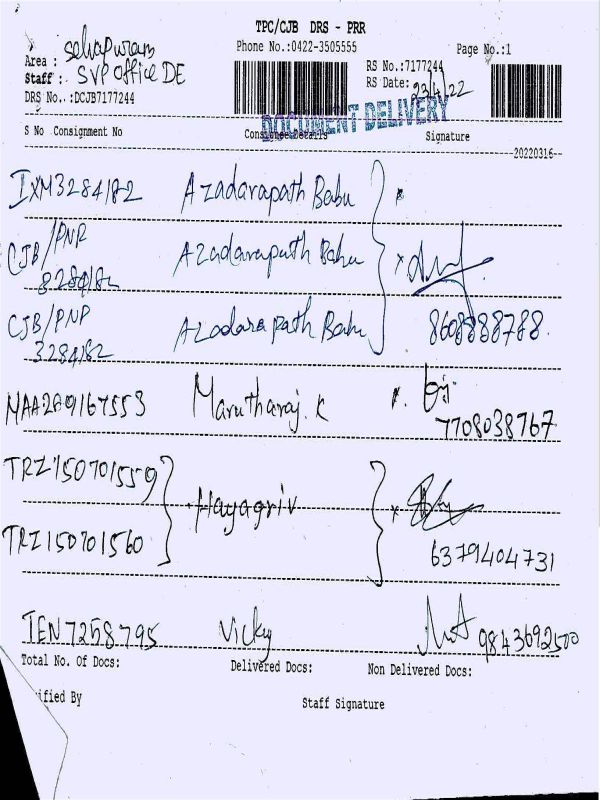 TPC/CJB DRS - PRR
Phone No.:0422-3505555
Page No.:1
Area : Selvapuram
Staff : SVP Office DE
DRS No.:DCJB7177244
RS No.:7177244
RS Date: 23/4/22
DOCUMENT DELIVERY
S No Consignment No Consignee Details Signature
20220316
IXM3284182 Azadarapath Babu
CJB/PNP Azadarapath Babu
3284182
CJB/PNP Azadarapath Babu 8608888788
3284182
MAA289167553 Marutharaj. K
7708038767
TRZ150701559
Hayagriv
TRZ150701560 6379404731
TEN7258795 Vicky 9843692500
Total No. Of Docs: Delivered Docs: Non Delivered Docs:
ified By
Staff Signature